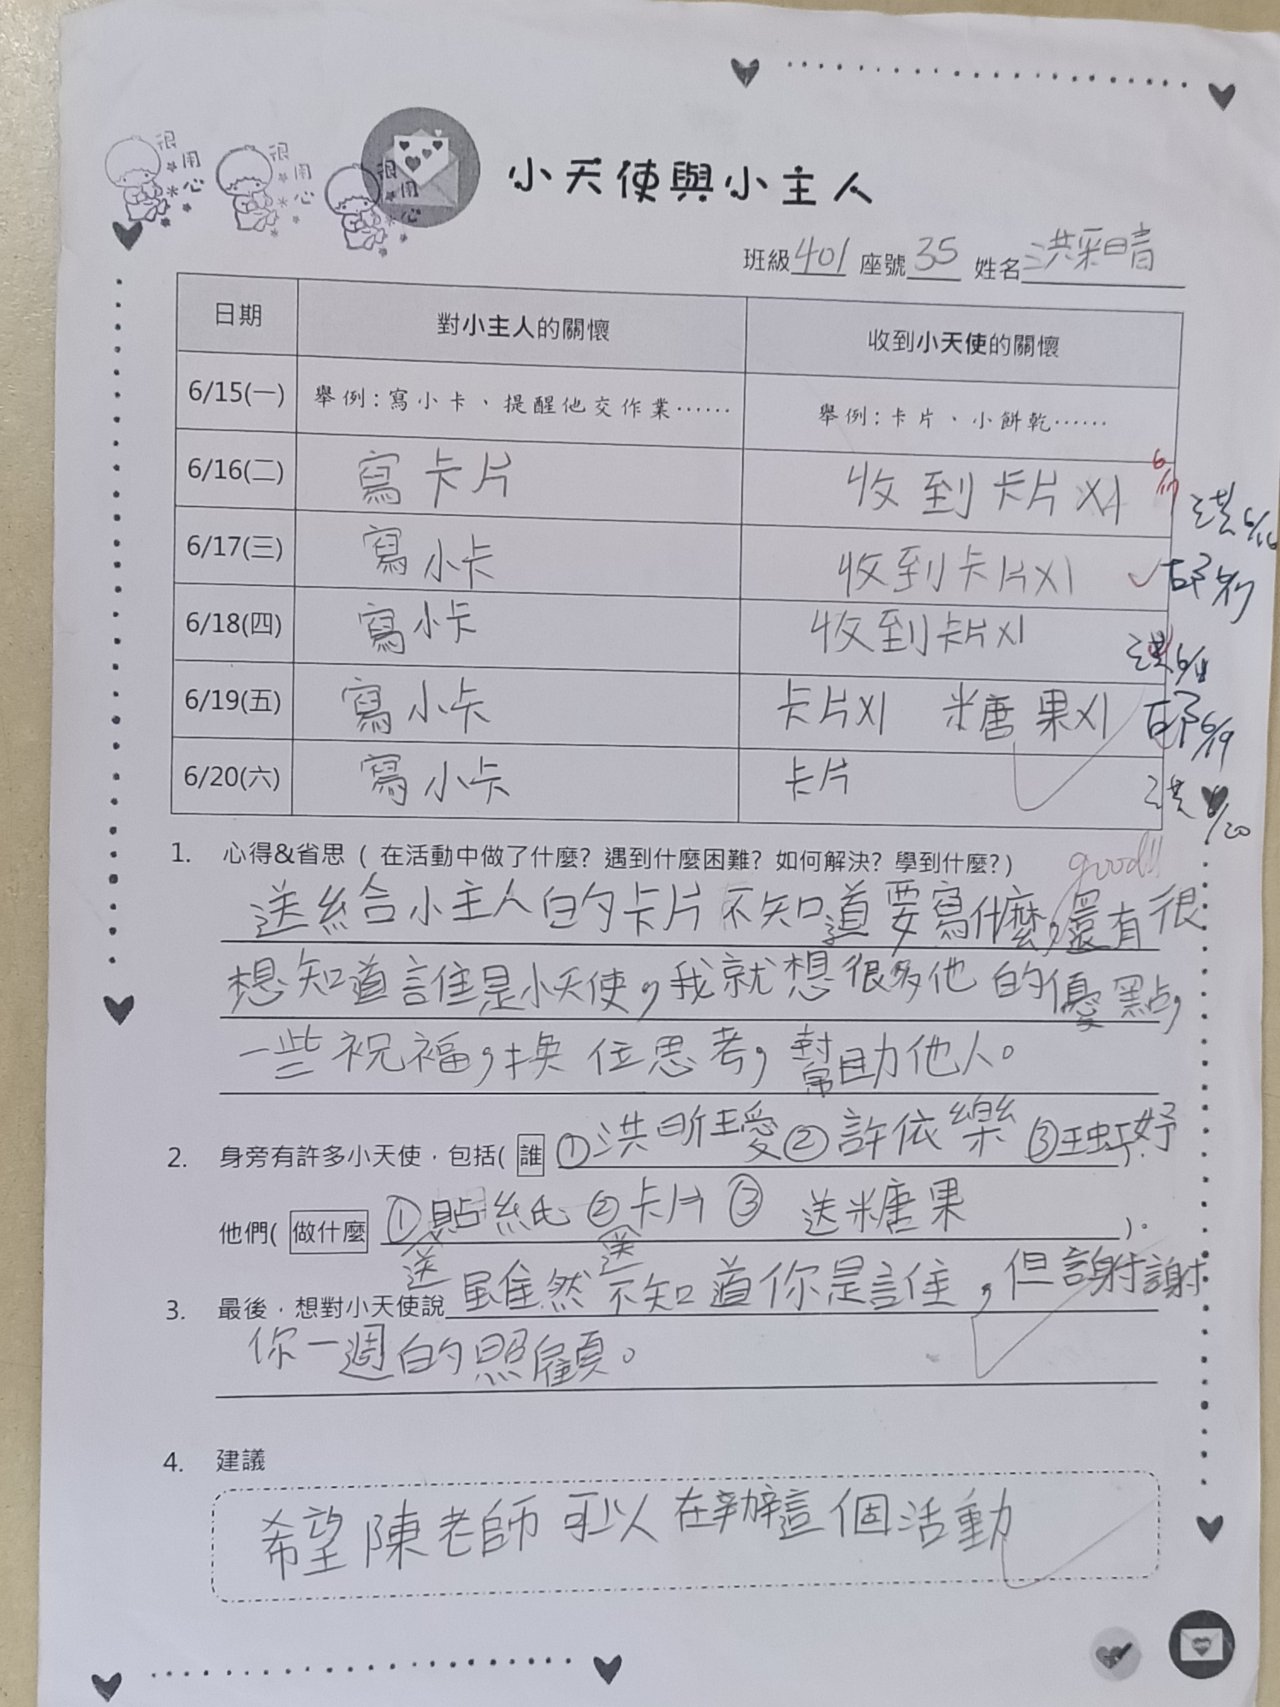 很用心 很用心 很用心
小天使與小主人
班級 401 座號 35 姓名 洪采晴
日期 對小主人的關懷 收到小天使的關懷
6/15(一) 舉例:寫小卡、提醒他交作業…… 舉例:卡片、小餅乾……
6/16(二) 寫卡片 收到卡片x1 6/17 洪6/16
6/17(三) 寫小卡 收到卡片x1 6/17
6/18(四) 寫小卡 收到卡片x1 洪6/18
6/19(五) 寫小卡 卡片x1 糖果x1 6/19
6/20(六) 寫小卡 卡片 洪6/20
1. 心得&省思 ( 在活動中做了什麼? 遇到什麼困難? 如何解決? 學到什麼?) good!!
送給小主人的卡片不知道要寫什麼,還有很
想知道誰是小天使,我就想很多他的優點,
一些祝福,換位思考,幫助他人。
2. 身旁有許多小天使,包括( 誰 ①洪昕璦②許依樂③王虹妤 ).
他們( 做什麼 ①送貼紙 ②送卡片 ③ 送糖果 ).
3. 最後,想對小天使說 雖然不知道你是誰,但謝謝
你一週的照顧。
4. 建議
希望陳老師可以在辦這個活動